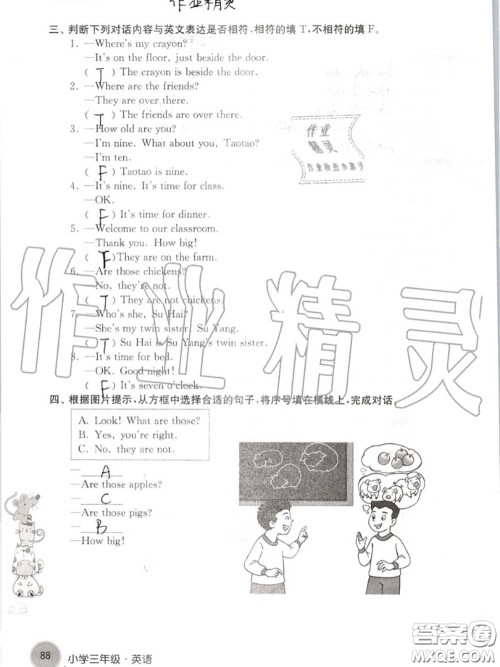 作业精灵
三、判断下列对话内容与英文表达是否相符,相符的填 T,不相符的填 F。
1. —Where's my crayon?
—It's on the floor, just beside the door.
( T ) The crayon is beside the door.
2. —Where are the friends?
—They are over there.
( T ) The friends are over there.
3. —How old are you?
—I'm nine. What about you, Taotao?
—I'm ten.
( F ) Taotao is nine.
4. —It's nine. It's time for class.
—OK.
( F ) It's time for dinner.
5. —Welcome to our classroom.
—Thank you. How big!
( F ) They are on the farm.
6. —Are those chickens?
—No, they're not.
( T ) They are not chickens.
7. —Who's she, Su Hai?
—She's my twin sister, Su Yang.
( T ) Su Hai is Su Yang's twin sister.
8. —It's time for bed.
—OK. Good night!
( F ) It's seven o'clock.
作业
精灵
作业精灵
四、根据图片提示,从方框中选择合适的句子,将序号填在横线上,完成对话。
A. Look! What are those?
B. Yes, you're right.
C. No, they are not.
— A
—Are those apples?
— C
—Are those pigs?
— B
—How big!
88
小学三年级·英语
答案圈
MXQE.COM